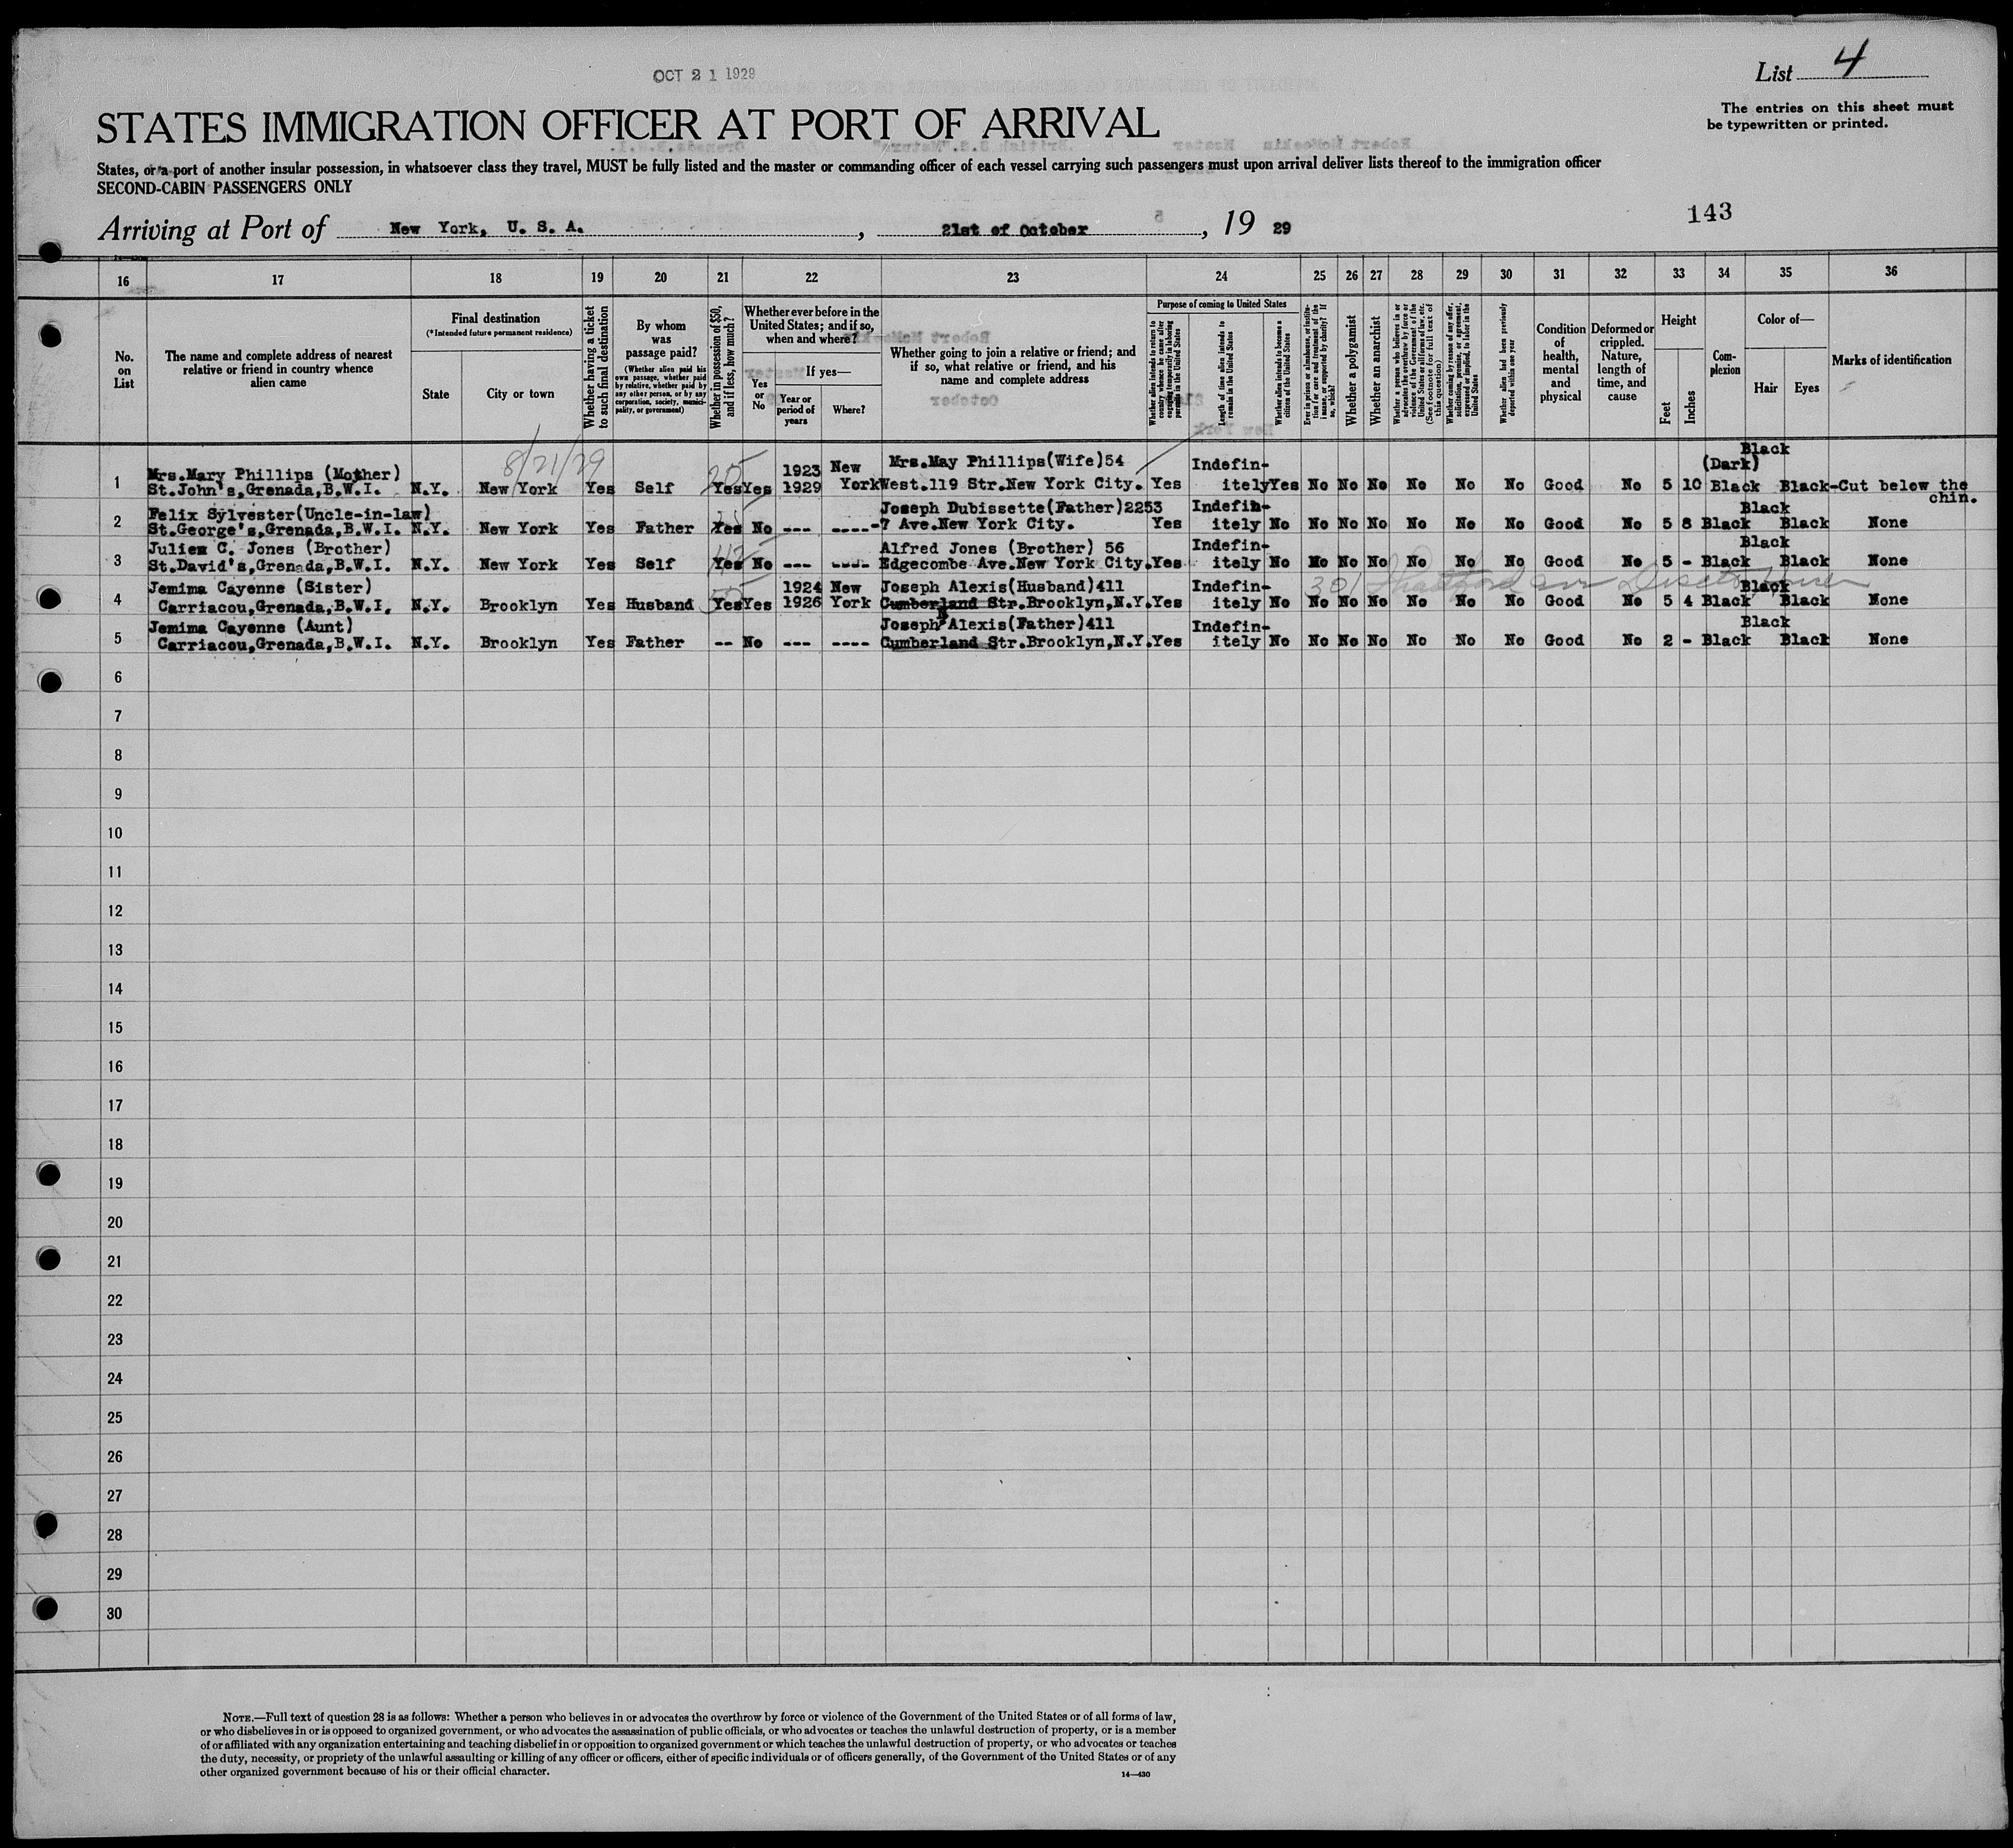 OCT 21 1929
List 4
The entries on this sheet must
be typewritten or printed.
STATES IMMIGRATION OFFICER AT PORT OF ARRIVAL
States, or a port of another insular possession, in whatsoever class they travel, MUST be fully listed and the master or commanding officer of each vessel carrying such passengers must upon arrival deliver lists thereof to the immigration officer
SECOND-CABIN PASSENGERS ONLY
Arriving at Port of New York, U. S. A. , 21st of October , 19 29
143
16 17 18 19 20 21 22 23 24 25 26 27 28 29 30 31 32 33 34 35 36
No. on List
The name and complete address of nearest relative or friend in country whence alien came
Final destination
(*Intended future permanent residence)
State
City or town
Whether having a ticket to such final destination
By whom was passage paid?
(Whether alien paid his own passage, whether paid by relative, whether paid by any other person, or by any corporation, society, municipality, or government)
Whether in possession of $50, and if less, how much?
Whether ever before in the United States; and if so, when and where?
Yes or No
If yes—
Year or period of years
Where?
Whether going to join a relative or friend; and if so, what relative or friend, and his name and complete address
Purpose of coming to United States
Whether alien intends to return to country whence he came after engaging temporarily in laboring pursuits in the United States
Length of time alien intends to remain in the United States
Whether alien intends to become a citizen of the United States
Ever in prison or almshouse or institution for care and treatment of the insane, or supported by charity? If so, which?
Whether a polygamist
Whether an anarchist
Whether a person who believes in or advocates the overthrow by force or violence of the Government of the United States or all forms of law, etc. (See footnote for full text of this question)
Whether coming by reason of any offer, solicitation, promise, or agreement, expressed or implied, to labor in the United States
Whether alien had been previously deported within one year
Condition of health, mental and physical
Deformed or crippled. Nature, length of time, and cause
Height
Feet
Inches
Complexion
Color of—
Hair
Eyes
Marks of identification
8/21/29
Mrs.Mary Phillips (Mother) 1923 New Mrs.May Phillips(Wife)54 Indefin- (Dark) Black
1 St.John's,Grenada,B.W.I. N.Y. New York Yes Self Yes Yes 1929 York West.119 Str.New York City. Yes itely Yes No No No No No No Good No 5 10 Black Black-Cut below the
chin.
Felix Sylvester(Uncle-in-law) Joseph Dubissette(Father)2253 Indefin- Black
2 St.George's,Grenada,B.W.I. N.Y. New York Yes Father Yes No --- ---- -7 Ave.New York City. Yes itely No No No No No No No Good No 5 8 Black Black None
Julien C. Jones (Brother) Alfred Jones (Brother) 56 Indefin- Black
3 St.David's,Grenada,B.W.I. N.Y. New York Yes Self Yes No --- ---- Edgecombe Ave.New York City. Yes itely No No No No No No No Good No 5 - Black Black None
301
Jemima Cayenne (Sister) 1924 New Joseph Alexis(Husband)411 Indefin- Black
4 Carriacou,Grenada,B.W.I. N.Y. Brooklyn Yes Husband Yes Yes 1926 York Cumberland Str.Brooklyn,N.Y. Yes itely No No No No No No No Good No 5 4 Black Black None
Jemima Cayenne (Aunt) Joseph Alexis(Father)411 Indefin- Black
5 Carriacou,Grenada,B.W.I. N.Y. Brooklyn Yes Father -- No --- ---- Cumberland Str.Brooklyn,N.Y. Yes itely No No No No No No No Good No 2 - Black Black None
6
7
8
9
10
11
12
13
14
15
16
17
18
19
20
21
22
23
24
25
26
27
28
29
30
NOTE.—Full text of question 28 is as follows: Whether a person who believes in or advocates the overthrow by force or violence of the Government of the United States or of all forms of law,
or who disbelieves in or is opposed to organized government, or who advocates the assassination of public officials, or who advocates or teaches the unlawful destruction of property, or is a member
of or affiliated with any organization entertaining and teaching disbelief in or opposition to organized government or which teaches the unlawful destruction of property, or who advocates or teaches
the duty, necessity, or propriety of the unlawful assaulting or killing of any officer or officers, either of specific individuals or of officers generally, of the Government of the United States or of any
other organized government because of his or their official character.
14—430